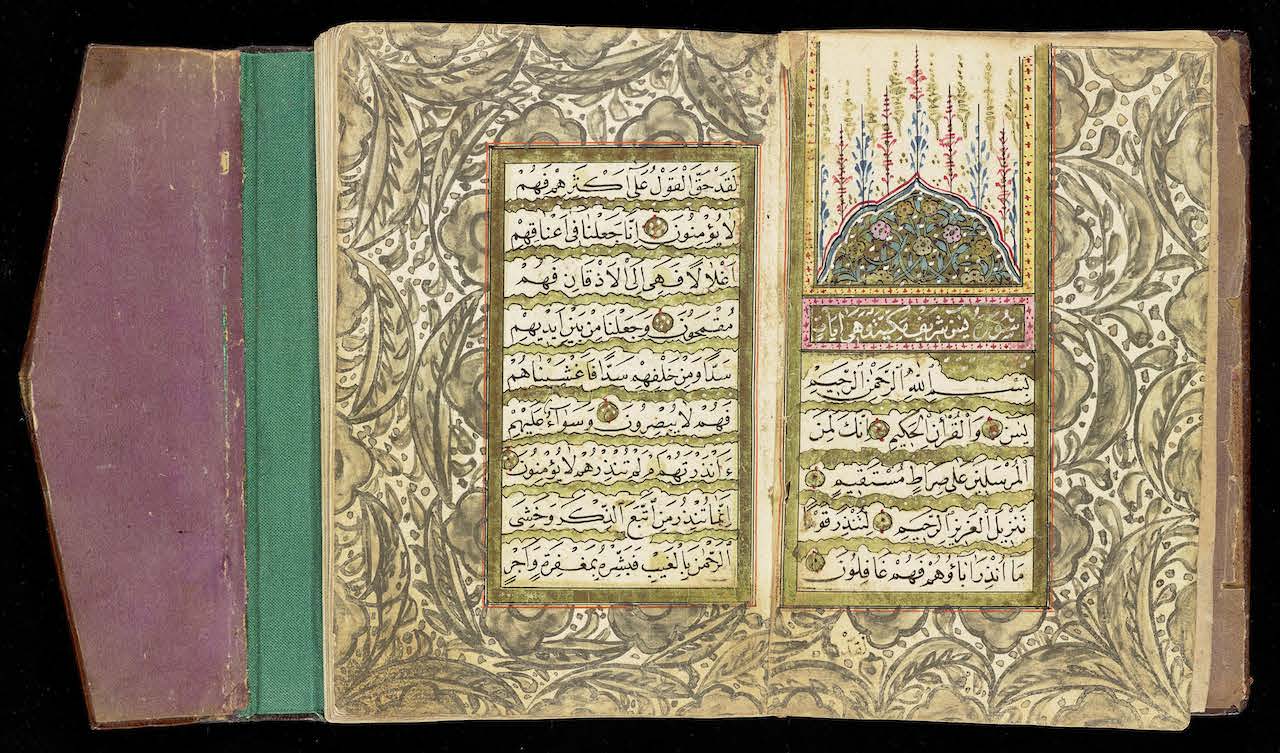 سورة يس شريف مكية وهى ايات
بسم الله الرحمن الرحيم
يس وَالْقُرْاٰنِ الْحَكِيمِ اِنَّكَ لَمِنَ
الْمُرْسَلِينَ عَلٰى صِرَاطٍ مُسْتَقِيمٍ
تَنْزِيلَ الْعَزِيزِ الرَّحِيمِ لِتُنْذِرَ قَوْمًا
مَا اُنْذِرَ اٰبَاؤُهُمْ فَهُمْ غَافِلُونَ
لَقَدْ حَقَّ الْقَوْلُ عَلٰٓى اَكْثَرِهِمْ فَهُمْ
لَا يُؤْمِنُونَ اِنَّا جَعَلْنَا فِى اَعْنَاقِهِمْ
اَغْلَالًا فَهِىَ اِلَى الْاَذْقَانِ فَهُمْ
مُقْمَحُونَ وَجَعَلْنَا مِنْ بَيْنِ اَيْدِيهِمْ
سَدًّا وَمِنْ خَلْفِهِمْ سَدًّا فَاَغْشَيْنَاهُمْ
فَهُمْ لَا يُبْصِرُونَ وَسَوَٓاءٌ عَلَيْهِمْ
ءَاَنْذَرْتَهُمْ اَمْ لَمْ تُنْذِرْهُمْ لَا يُؤْمِنُونَ
اِنَّمَا تُنْذِرُ مَنِ اتَّبَعَ الذِّكْرَ وَخَشِىَ
الرَّحْمٰنَ بِالْغَيْبِ فَبَشِّرْهُ بِمَغْفِرَةٍ وَاَجْرٍ